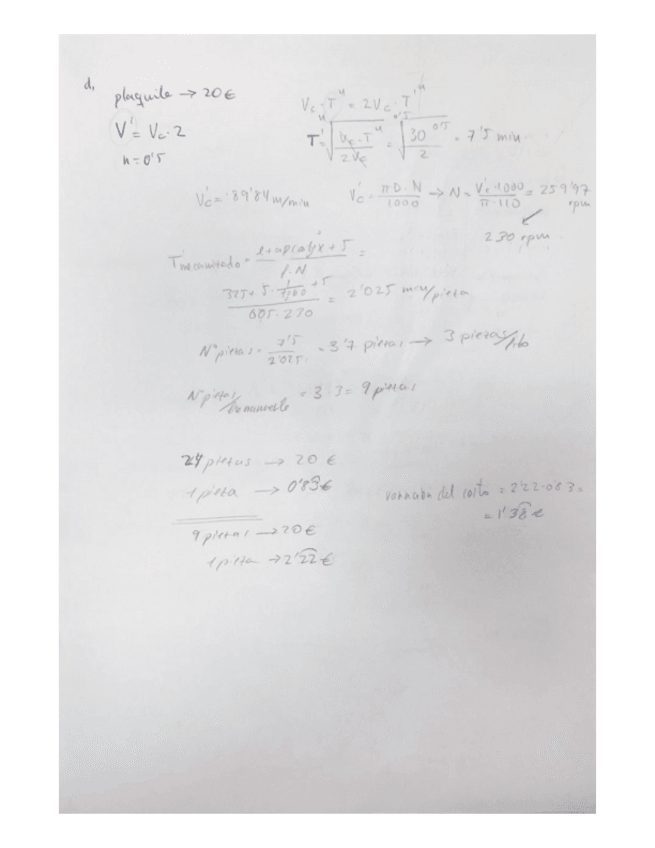 d,
plaquita → 20 €
V' = Vc · 2
n = 0'5
Vc · T^n = 2Vc · T'^n
T' = ^n√(Vc · T^n / 2Vc) = ^0'5√(30^0'5 / 2) = 7'5 min
Vc' = 89'84 m/min
Vc' = π D · N / 1000 → N = Vc' · 1000 / π · 110 = 259'97 rpm
230 rpm
T mecanizado = l + ap cotgx + 5 / f · N =
= 2'025 min/pieza
Nº piezas = 7'5 / 2'025 = 3'7 piezas → 3 piezas/filo
Nº piezas / = 3 · 3 = 9 piezas
24 piezas → 20 €
1 pieza → 0'83 €
variación del coste = 2'22-0'83 =
= 1'38 €
9 piezas → 20 €
1 pieza → 2'22 €